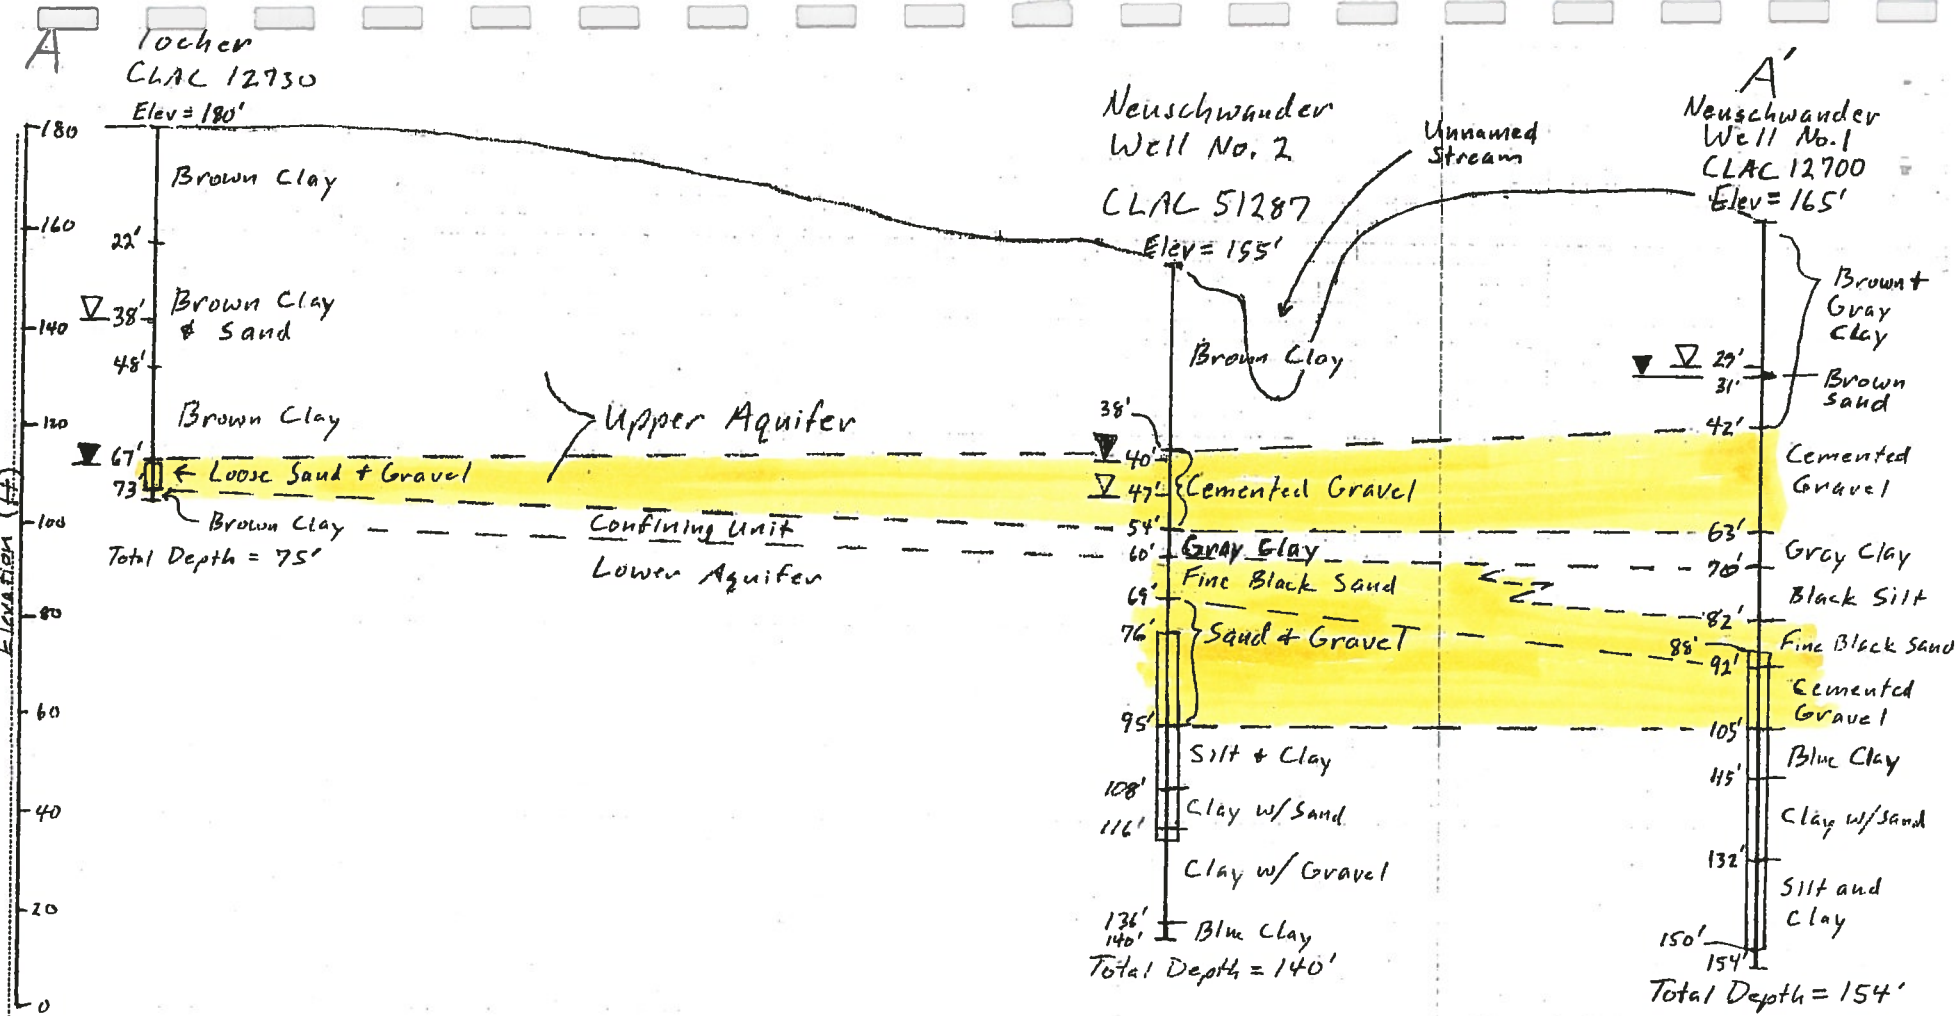 A
Yocher
CLAC 12730
Elev = 180'
180
160
140
120
100
80
60
40
20
0
Elevation (ft)
Brown Clay
22'
Brown Clay
& Sand
38'
48'
Brown Clay
67'
← Loose Sand + Gravel
73'
Brown Clay
Total Depth = 75'
Upper Aquifer
Confining Unit
Lower Aquifer
Neuschwander
Well No. 2
CLAC 51287
Elev = 155'
Brown Clay
38'
40'
47'
Cemented Gravel
54'
Gray Clay
60'
Fine Black Sand
69'
76'
Sand + Gravel
95'
Silt + Clay
108'
Clay w/Sand
116'
Clay w/ Gravel
136'
140'
Blue Clay
Total Depth = 140'
Unnamed
Stream
A'
Neuschwander
Well No. 1
CLAC 12700
Elev = 165'
Brown +
Gray
Clay
29'
31'
Brown
Sand
42'
Cemented
Gravel
63'
Gray Clay
70'
Black Silt
82'
Fine Black Sand
88'
92'
Cemented
Gravel
105'
Blue Clay
115'
Clay w/Sand
132'
Silt and
Clay
150'
154'
Total Depth = 154'